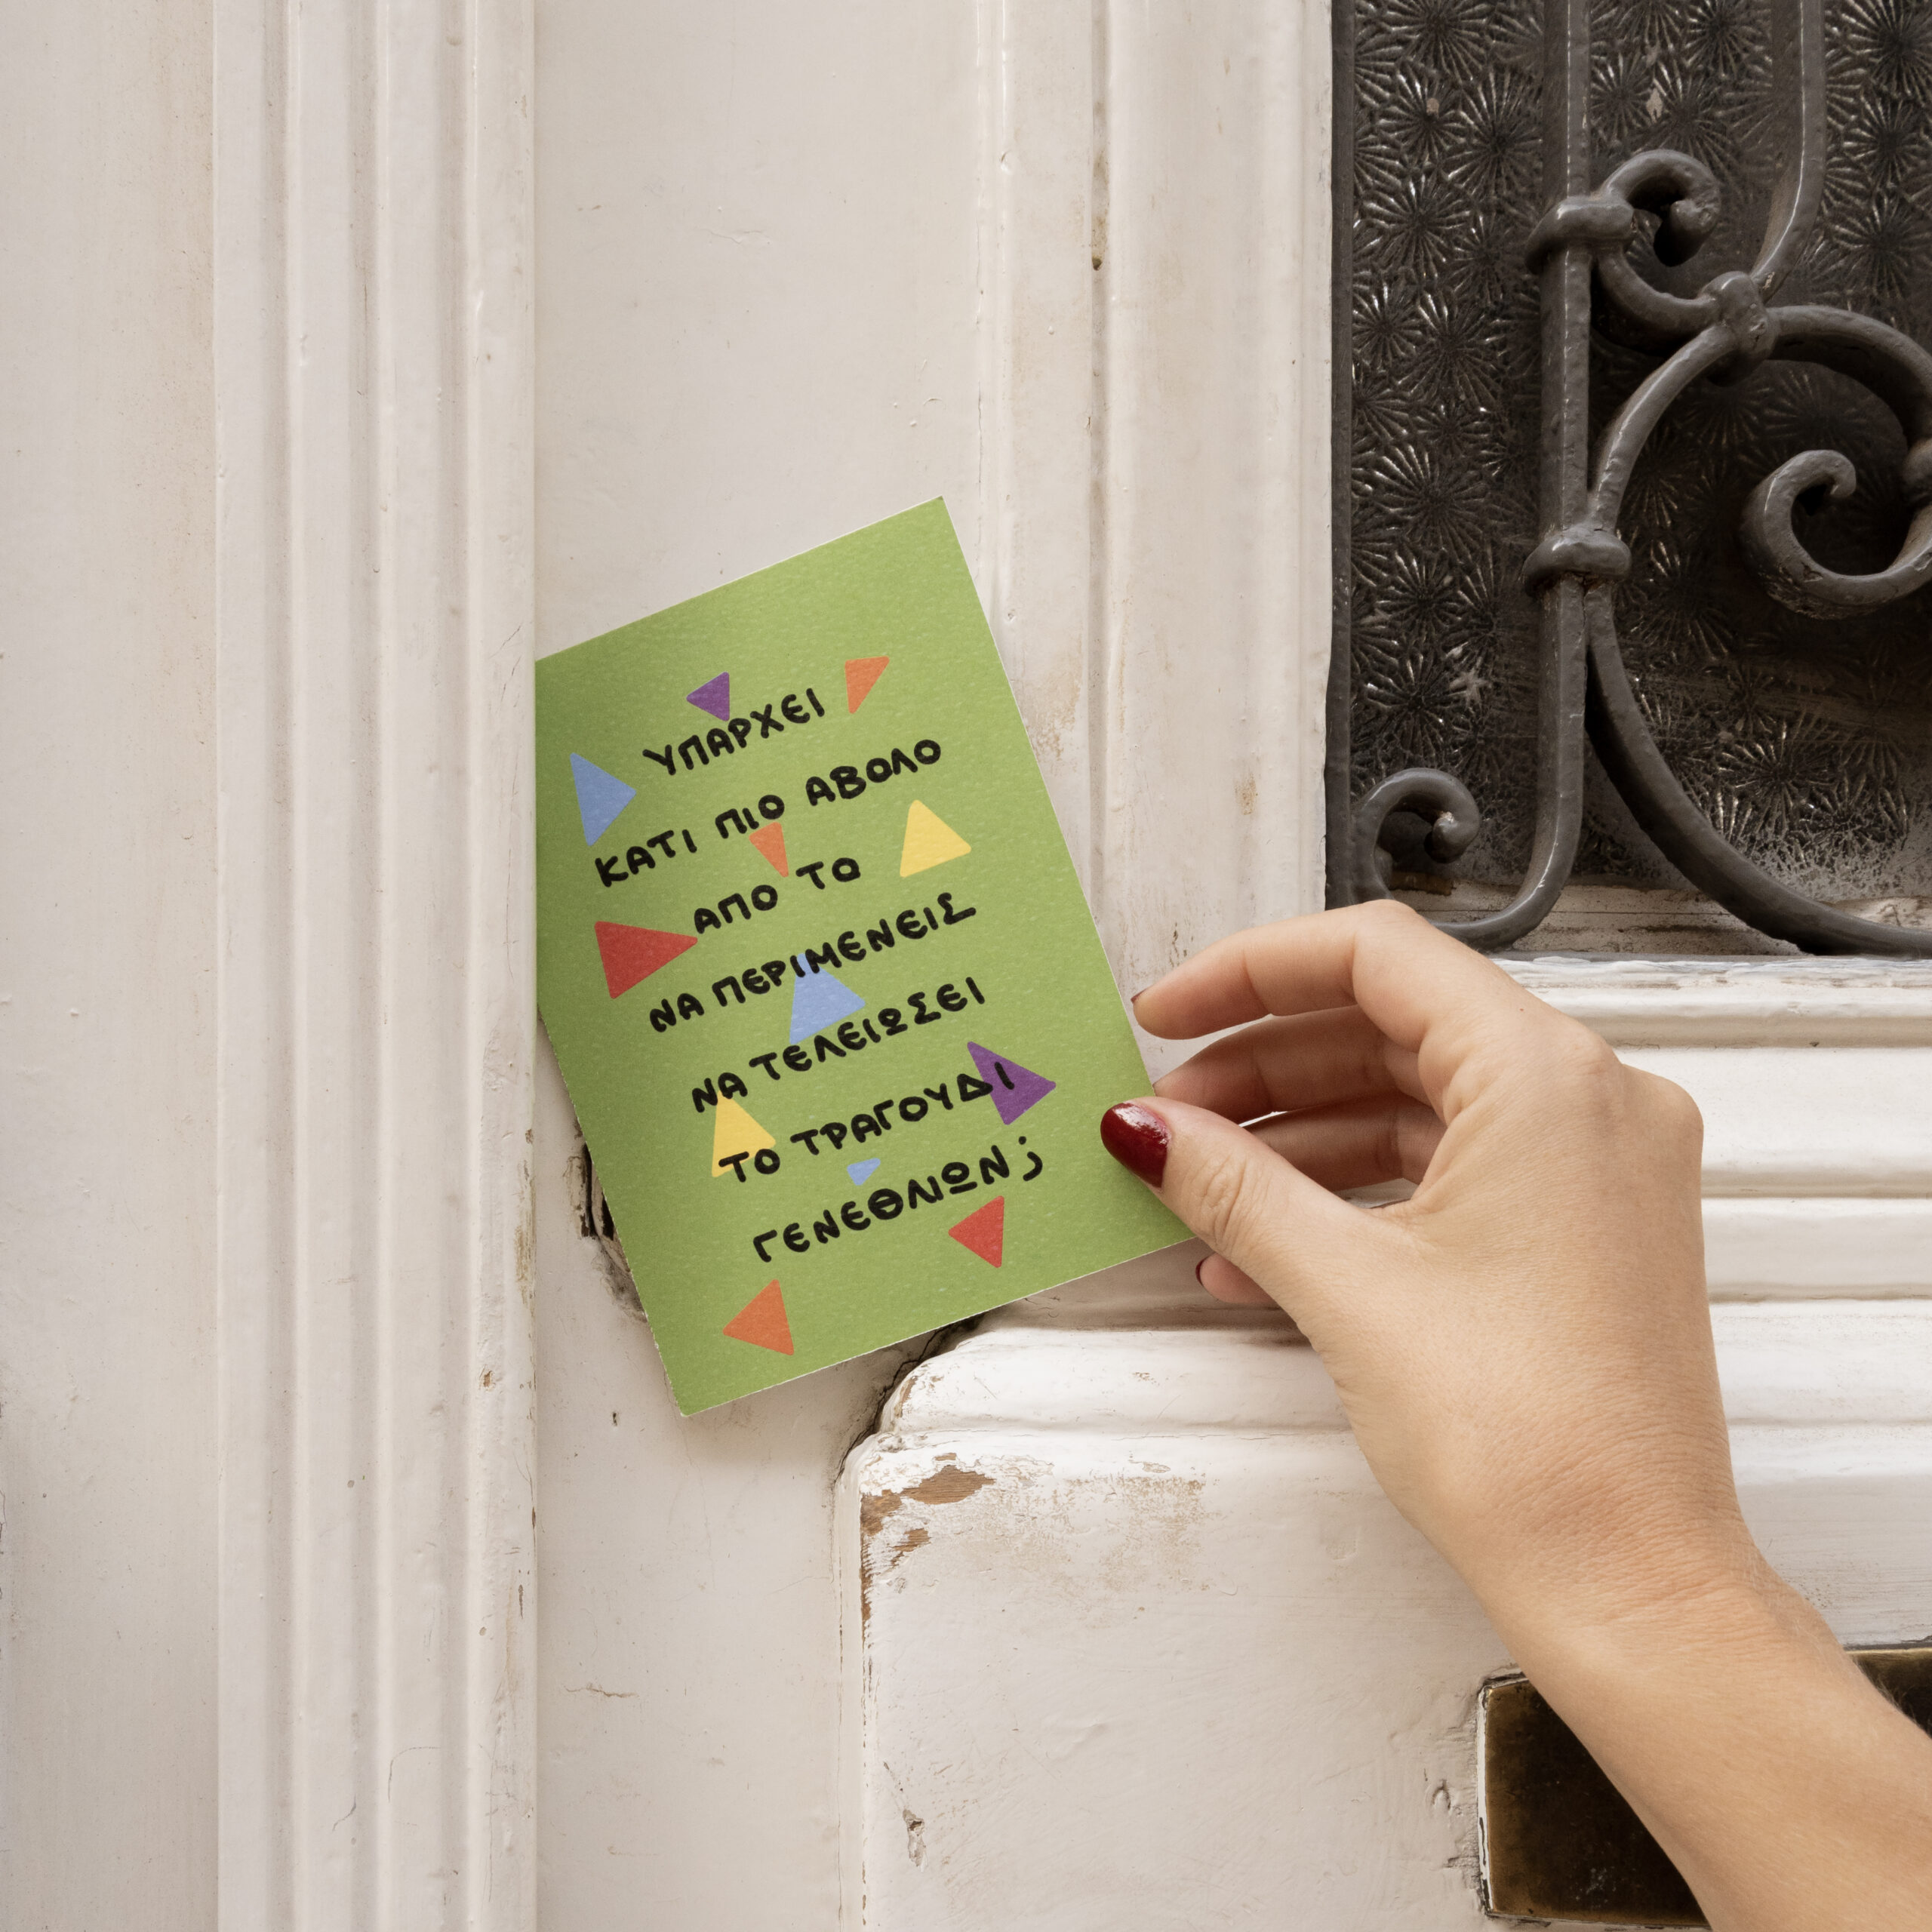 ΥΠΑΡΧΕΙ
ΚΑΤΙ ΠΙΟ ΑΒΟΛΟ
ΑΠΟ ΤΟ
ΝΑ ΠΕΡΙΜΕΝΕΙΣ
ΝΑ ΤΕΛΕΙΩΣΕΙ
ΤΟ ΤΡΑΓΟΥΔΙ
ΓΕΝΕΘΛΙΩΝ;